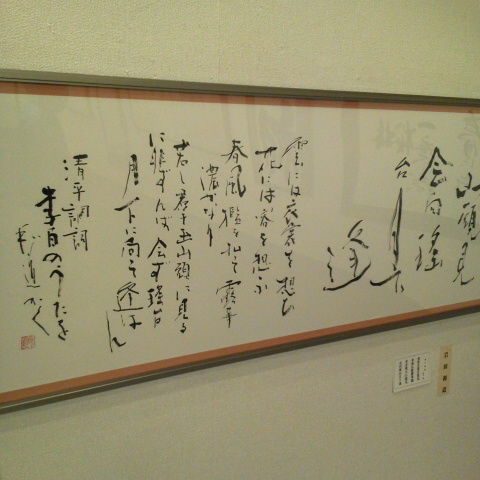 山頭見
会向瑶
台月下
逢
雲には衣裳を想ひ
花には容を想ふ
春風檻を払て露華
濃かなり
若し群玉山頭に見る
に非ずんば会ず瑶台
月下に向て逢はん
清平調詞
李白のうたを
道かく